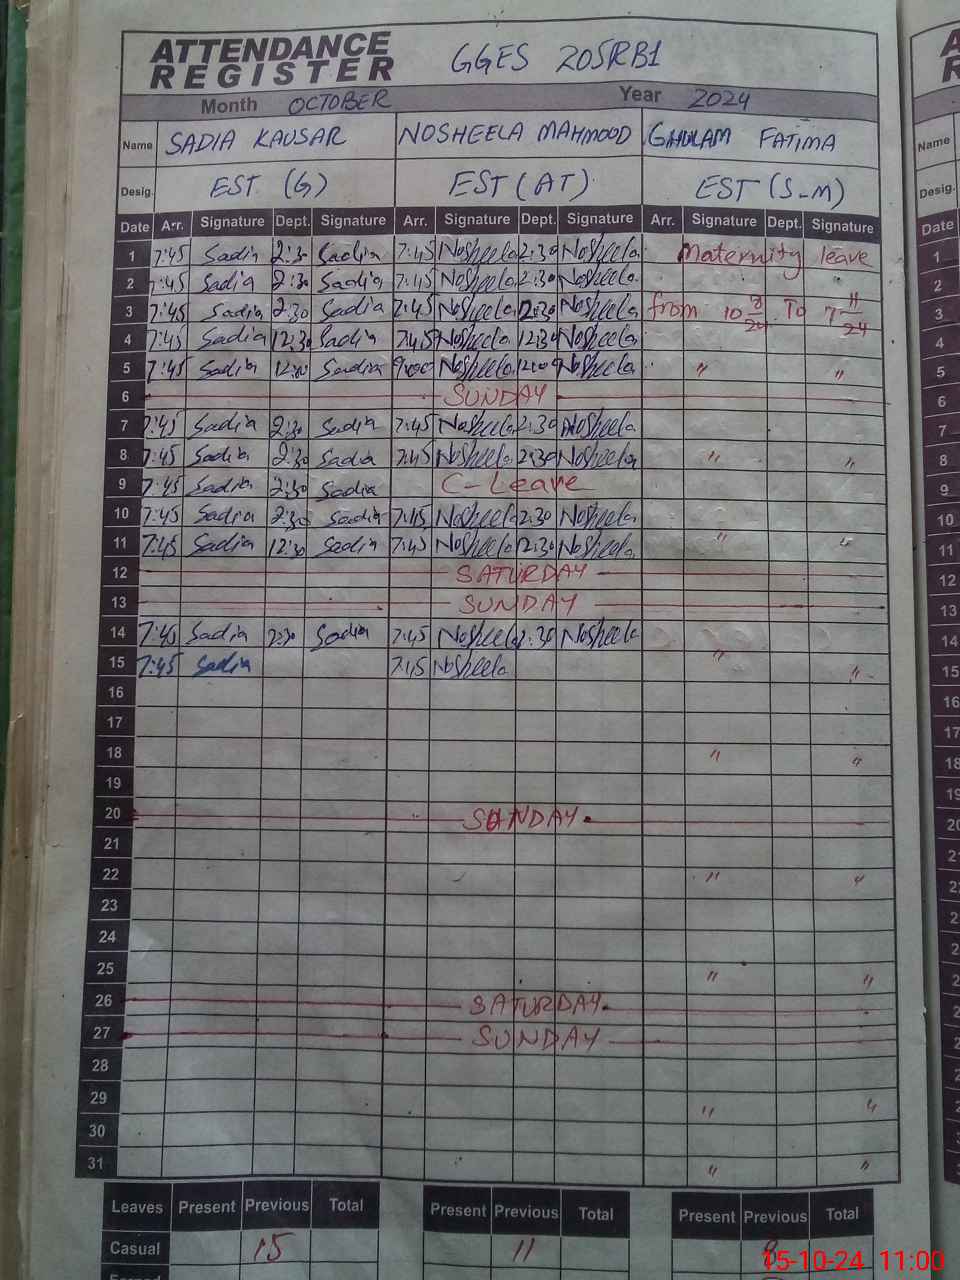 ATTENDANCE REGISTER GGES 205RB1
Month OCTOBER Year 2024
Name SADIA KAUSAR NOSHEELA MAHMOOD GHULAM FATIMA
Desig. EST (G) EST (AT) EST (S-M)
Date Arr. Signature Dept. Signature Arr. Signature Dept. Signature Arr. Signature Dept. Signature
1 7:45 Sadia 2:30 Sadia 7:45 Nosheela 2:30 Nosheela Maternity leave
2 7:45 Sadia 2:30 Sadia 7:45 Nosheela 2:30 Nosheela
3 7:45 Sadia 2:30 Sadia 7:45 Nosheela 2:30 Nosheela from 10 8/24 To 7 11/24
4 7:45 Sadia 12:30 Sadia 7:45 Nosheela 12:30 Nosheela
5 7:45 Sadia 12:00 Sadia 9:00 Nosheela 12:00 Nosheela " "
6 SUNDAY
7 7:45 Sadia 2:30 Sadia 7:45 Nosheela 2:30 Nosheela
8 7:45 Sadia 2:30 Sadia 7:45 Nosheela 2:30 Nosheela " "
9 7:45 Sadia 2:30 Sadia C-Leave
10 7:45 Sadia 2:30 Sadia 7:45 Nosheela 2:30 Nosheela
11 7:45 Sadia 12:30 Sadia 7:45 Nosheela 12:30 Nosheela " "
12 SATURDAY
13 SUNDAY
14 7:45 Sadia 2:30 Sadia 7:45 Nosheela 2:30 Nosheela
15 7:45 Sadia 7:45 Nosheela " "
16
17
18 " "
19
20 SUNDAY
21
22 " "
23
24
25 " "
26 SATURDAY
27 SUNDAY
28
29 " "
30
31 " "
Leaves Present Previous Total Present Previous Total Present Previous Total
Casual 15 11
15-10-24 11:00